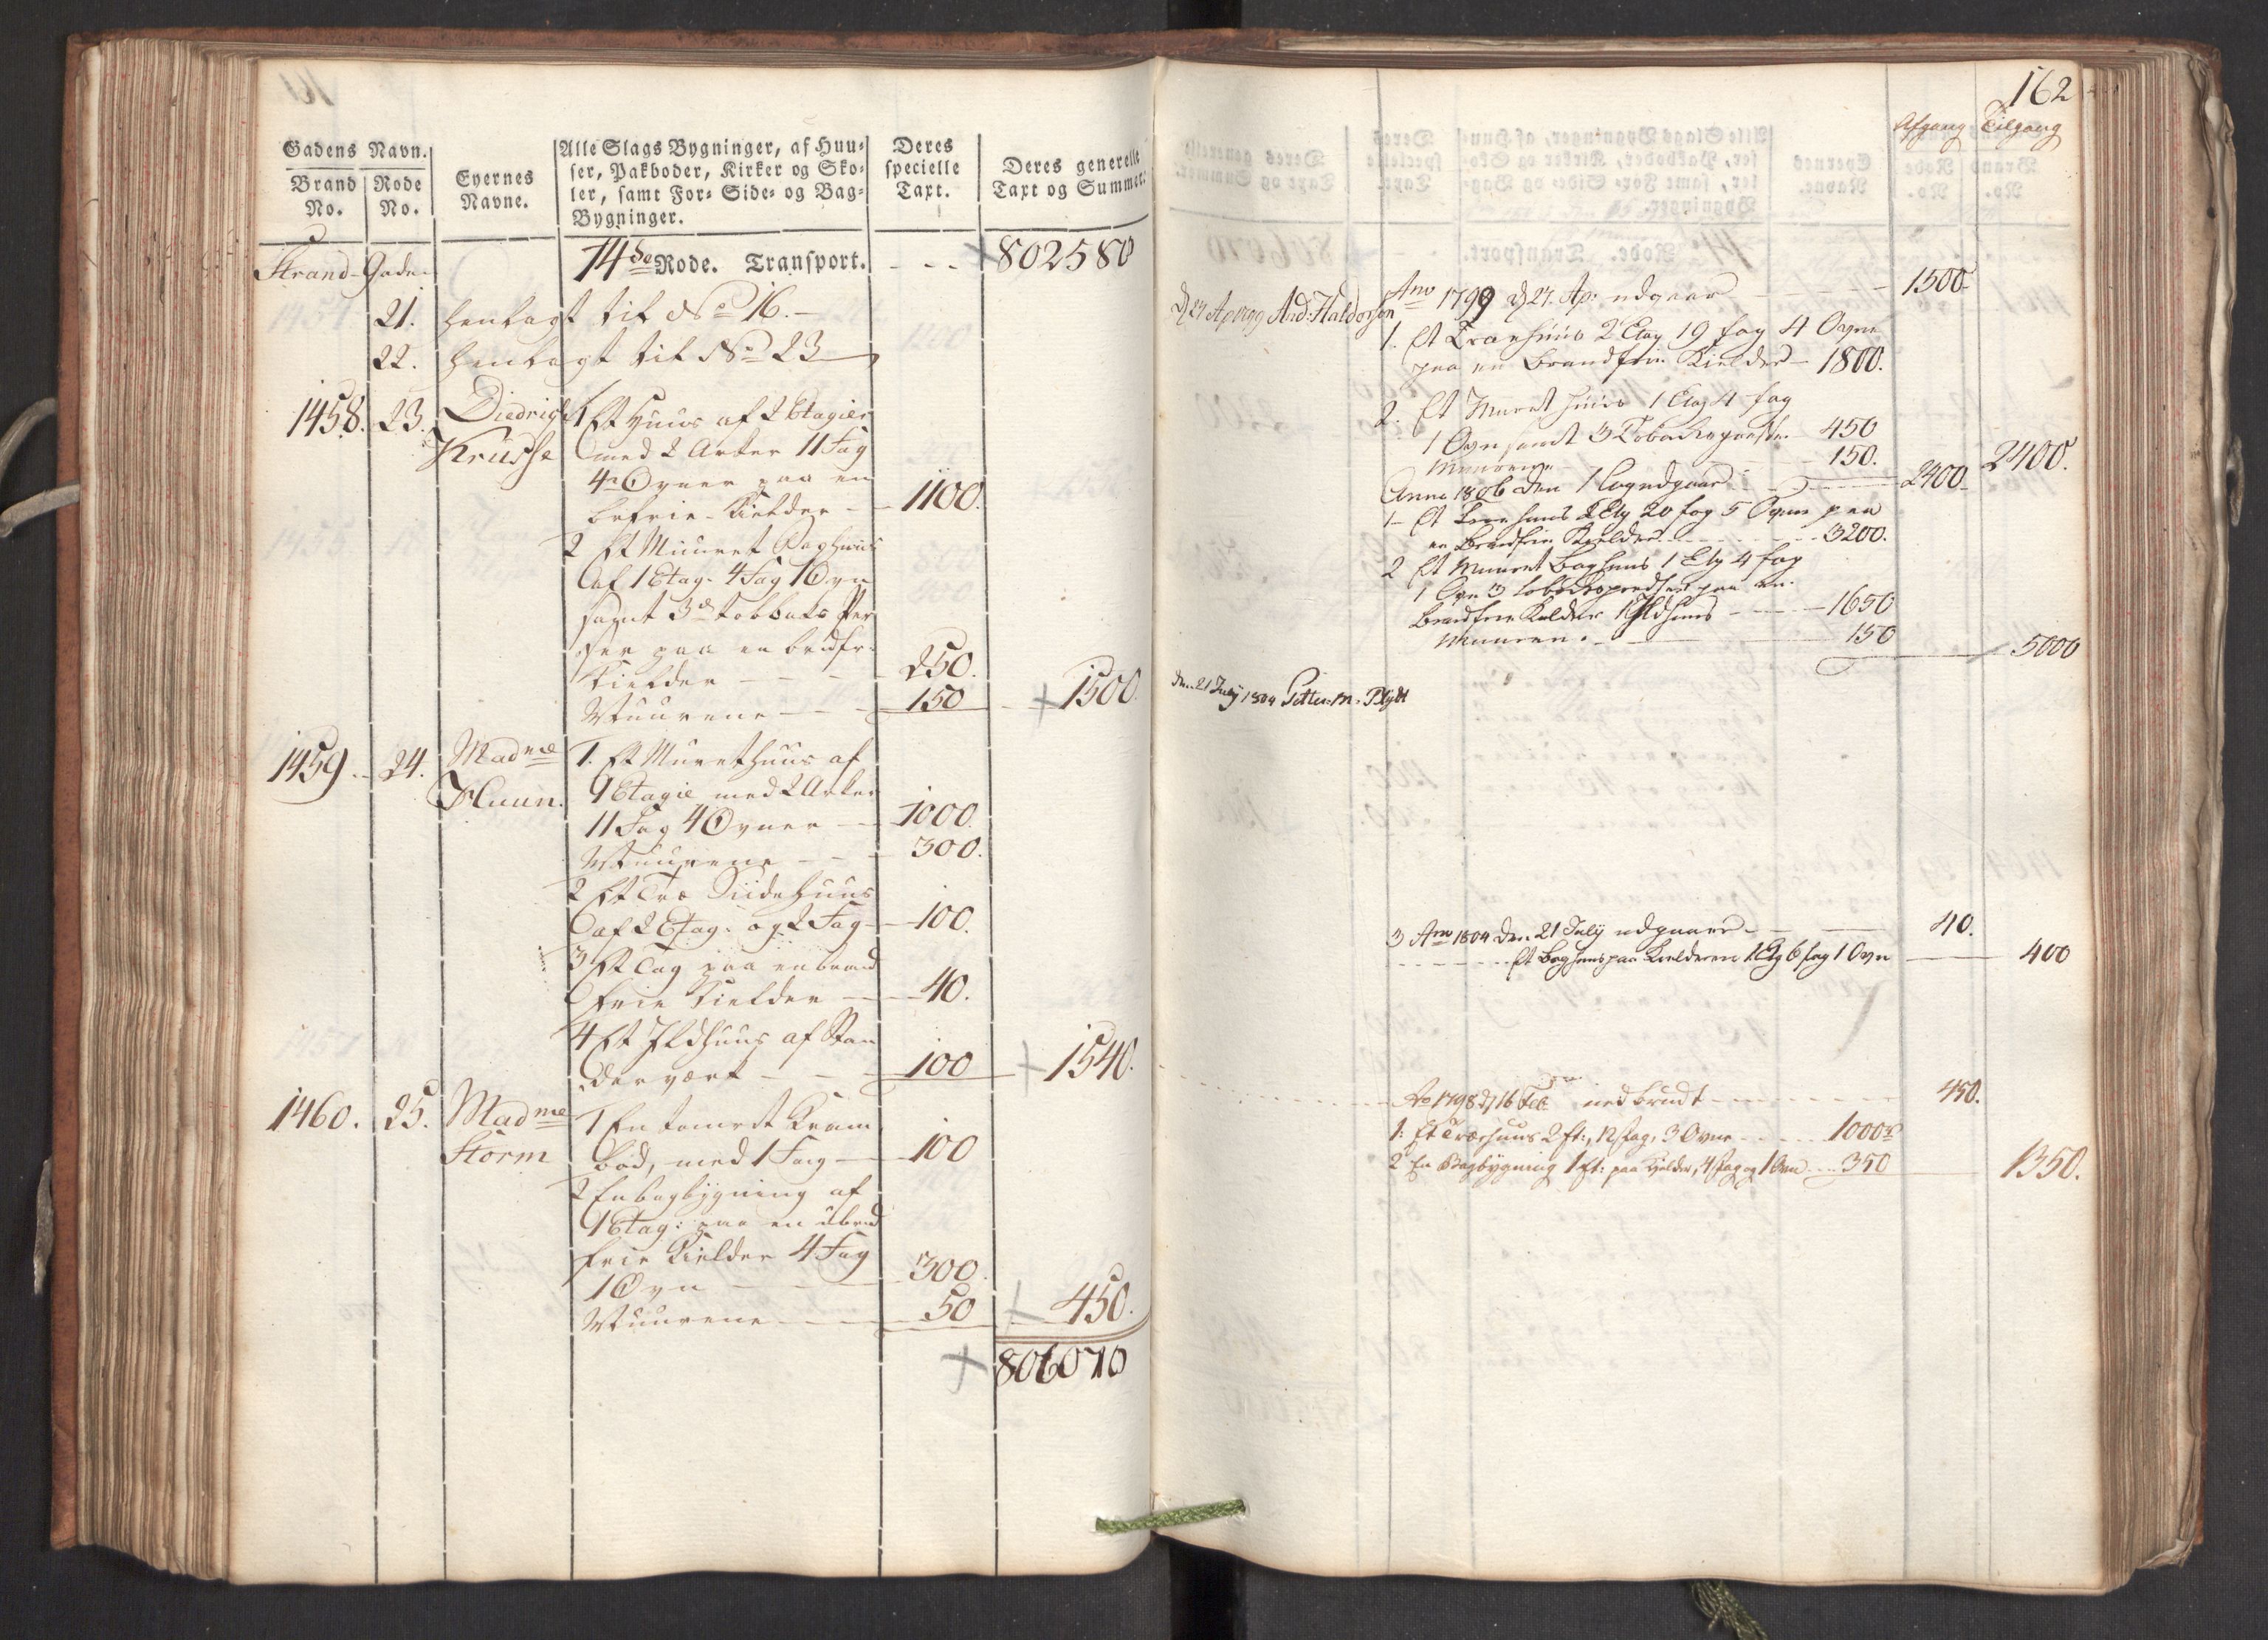 Gadens Navn.
Brand No.
Rode No.
Eyernes Navne.
Alle Slags Bygninger, af Huu-
ser, Pakboder, Kirker og Sko-
ler, samt For- Side- og Bag-
Bygninger.
Deres specielle Taxt.
Deres generelle Taxt og Summer.
Strand-Gaden
14de Rode. Transport. - - - 802580
21. henlagt til No 16. -
22. henlagt til No 23
1458. 23. Diedrich 1 Et Huus af 2 Etagier
Krüsse med 2 Arker 11 Fag
4 Ovner paa en
brfrie Kielder - 1100.
2 Et Muuret Baghuus
af 1 Etag. 4 Fag 1 Ovn
samt 3de Tobbaks Per
ser paa en brdfr.
Kielder - - - 250.
Muurene - - 150 - 1500.
1459. - 24. Madme 1. Et Muret huus af
Huun. 1 Etagie med 2 Arker
11 Fag 4 Ovner - 1000.
Muurene - - 300.
2 Et Træ Siide huus
af 2 Etag: og 2 Fag - 100.
3 Et Tag paa en brand
frie Kielder - 40.
4 Et Ildhuus af Stan
derværk - - 100 - 1540.
1460. 25. Madme 1 En tømret Kram
Storm bod, med 1 Fag - 100
2 En bagbygning af
1 Etag: paa en ubrand
frie Kielder 4 Fag
1 Ovn - - 300.
Muurene - - 50 450.
806070
162
Afgang Tilgang
d 27 Ap 1799 And: Haldorsen
Ano 1799 d 27. Ap: udgaar - - 1500
1. Et Træehuus 2 Etag 19 fag 4 Ovne
paa en Brandfrie Kielder - 1800.
2. Et Muret huus 1 Etag 4 fag
1 Ovn samt 3 Tobaks perser 450
Murene - 150. 2400.
Anno 1806 den 1 Aug udgaar - - 2400
1 - Et huus 2 Etg 20 fag 5 Ovne paa
en Brandfrie Kielder - - 3200.
2 Et Muuret Baghuus 1 Etg 4 fag
1 Ovn 3 tobakspredser paa en
Brandfrie Kielder Ildhuus - - 1650
Muuren. - 150 - 5000
den 21 July 1804 Petter M. Plydt
3 Ano 1804 den 21 July udgaaer - - 40.
Et Baghuus paa Kielderen 1 Etg 6 fag 1 Ovn - 400
Ao 1798 d 16 Feb: nedbrudt - - 450.
1: Et Træehuus 2 Et:, 12 Fag, 3 Ovne - - 1000
2 En Bagbygning 1 Et: paa Kielder, 4 Fag og 1 Ovn - - 350 1350.